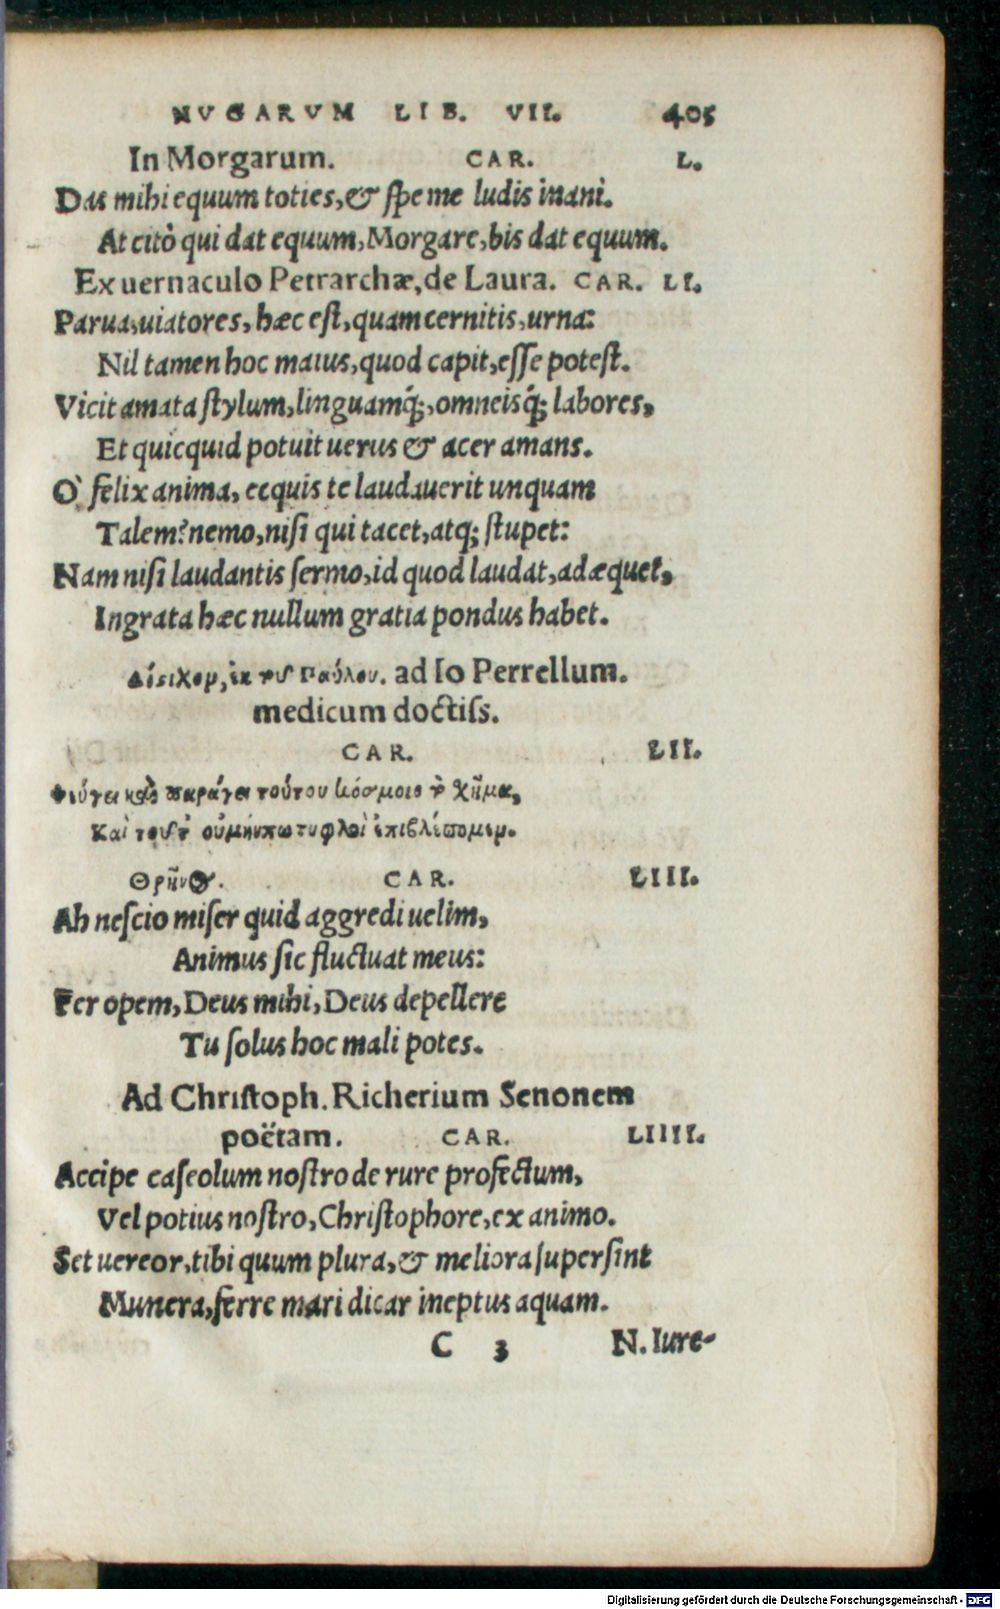 NVGARVM LIB. VII. 405
In Morgarum. CAR. L.
Das mihi equum toties, & spe me ludis inani.
At citò qui dat equum, Morgare, bis dat equum.
Ex uernaculo Petrarchæ, de Laura. CAR. LI.
Parua, uiatores, hæc est, quam cernitis, urna:
Nil tamen hoc maius, quod capit, esse potest.
Vicit amata stylum, linguamq́;, omneisq́; labores,
Et quicquid potuit uerus & acer amans.
O' felix anima, ecquis te laudauerit unquam
Talem? nemo, nisi qui tacet, atq; stupet:
Nam nisi laudantis sermo, id quod laudat, adæquet,
Ingrata hæc nullum gratia pondus habet.
Δίσιχομ, ἐκ τοῦ Παύλου. ad Io Perrellum.
medicum doctiss.
CAR. LII.
Φεύγει καὶ παράγει τούτου κόσμοιο τὸ χῆμα,
Καὶ τοῦτ' οὐμήνπω τυφλοὶ ἐπιβλέπομεμ.
Θρῆνος. CAR. LIII.
Ah nescio miser quid aggredi uelim,
Animus sic fluctuat meus:
Fer opem, Deus mihi, Deus depellere
Tu solus hoc mali potes.
Ad Christoph. Richerium Senonem
poëtam. CAR. LIIII.
Accipe caseolum nostro de rure profectum,
Vel potius nostro, Christophore, ex animo.
Set uereor, tibi quum plura, & meliora supersint
Munera, ferre mari dicar ineptus aquam.
C 3 N. Iure-
Digitalisierung gefördert durch die Deutsche Forschungsgemeinschaft - DFG